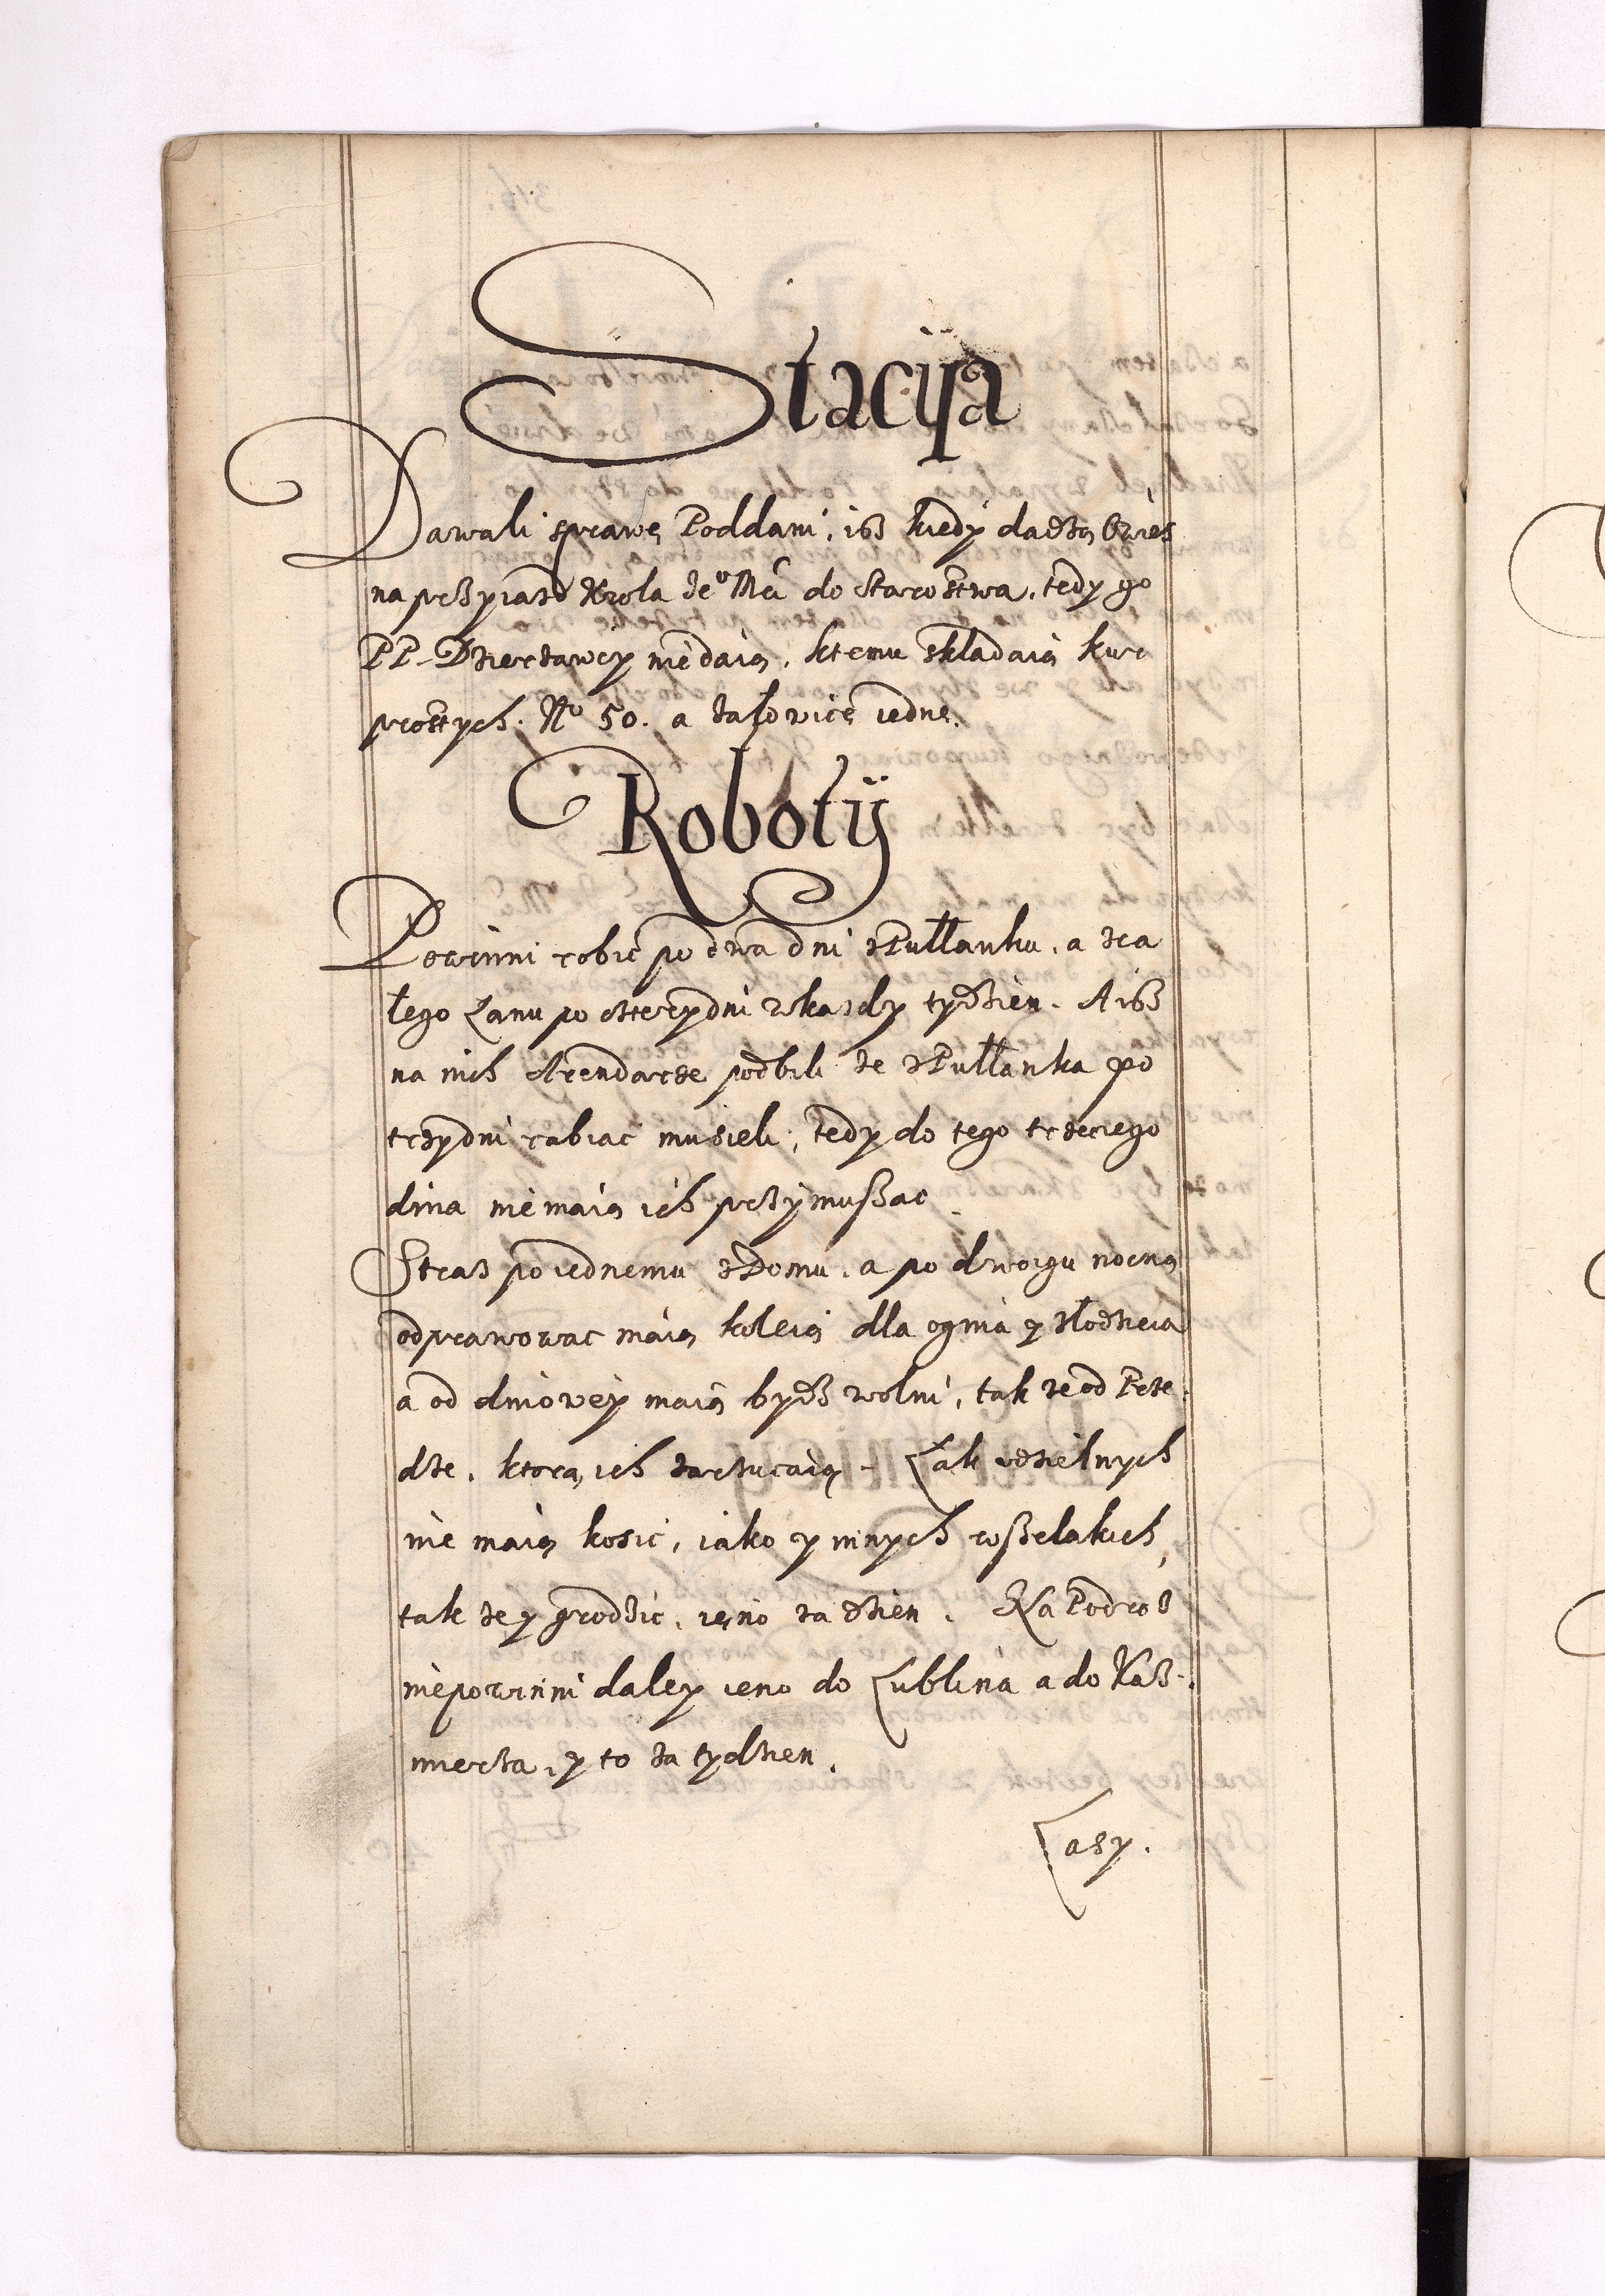 Stacija
Dawali sprawę Poddani, isz kiedy dadzą Owies
na przyiazd Krola Je⁰ Mći do Starostwa, tedy go
PP. Dzierzawcy niedaią, ktemu składaią kur
prostych. N⁰ 50. a Jałowicę iednę.
Robotÿ
Powinni robic po dwa dni z Pułłanku, a zca
łego Łanu po cztery dni wkazdy tydzien. A isz
na nich Arendarze podbili ze z Pułłanka po
trzy dni rabiac musieli, tedy do tego trzeciego
dnia niemaią ich przymuszac.
Straz po iednemu z Domu, a po dwoygu nocną
odprawowac maią koleią dla ognia y złodzieia
a od dniowey maią bydz wolni, tak ze od Prze,
dze, ktorą ich zarzucaią. Łąk udzielnych
nie maią kosic, iako y innych roszelakich,
tak ze y grodzic, ieno za dzien. Na Podroz
niepowinni daley ieno do Lublina a do Kaz-
mierza, y to za tydzien.
Lasy.